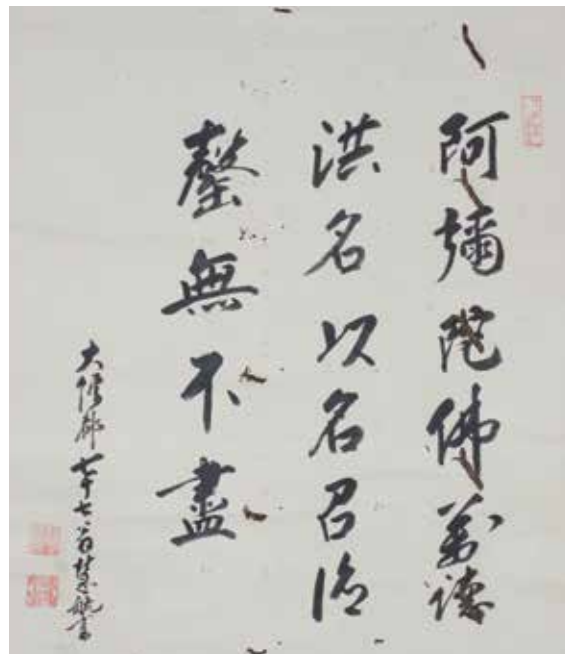 阿彌陀佛萬德
洪名以名召德
罄無不盡
大僧都七十七翁慧航書